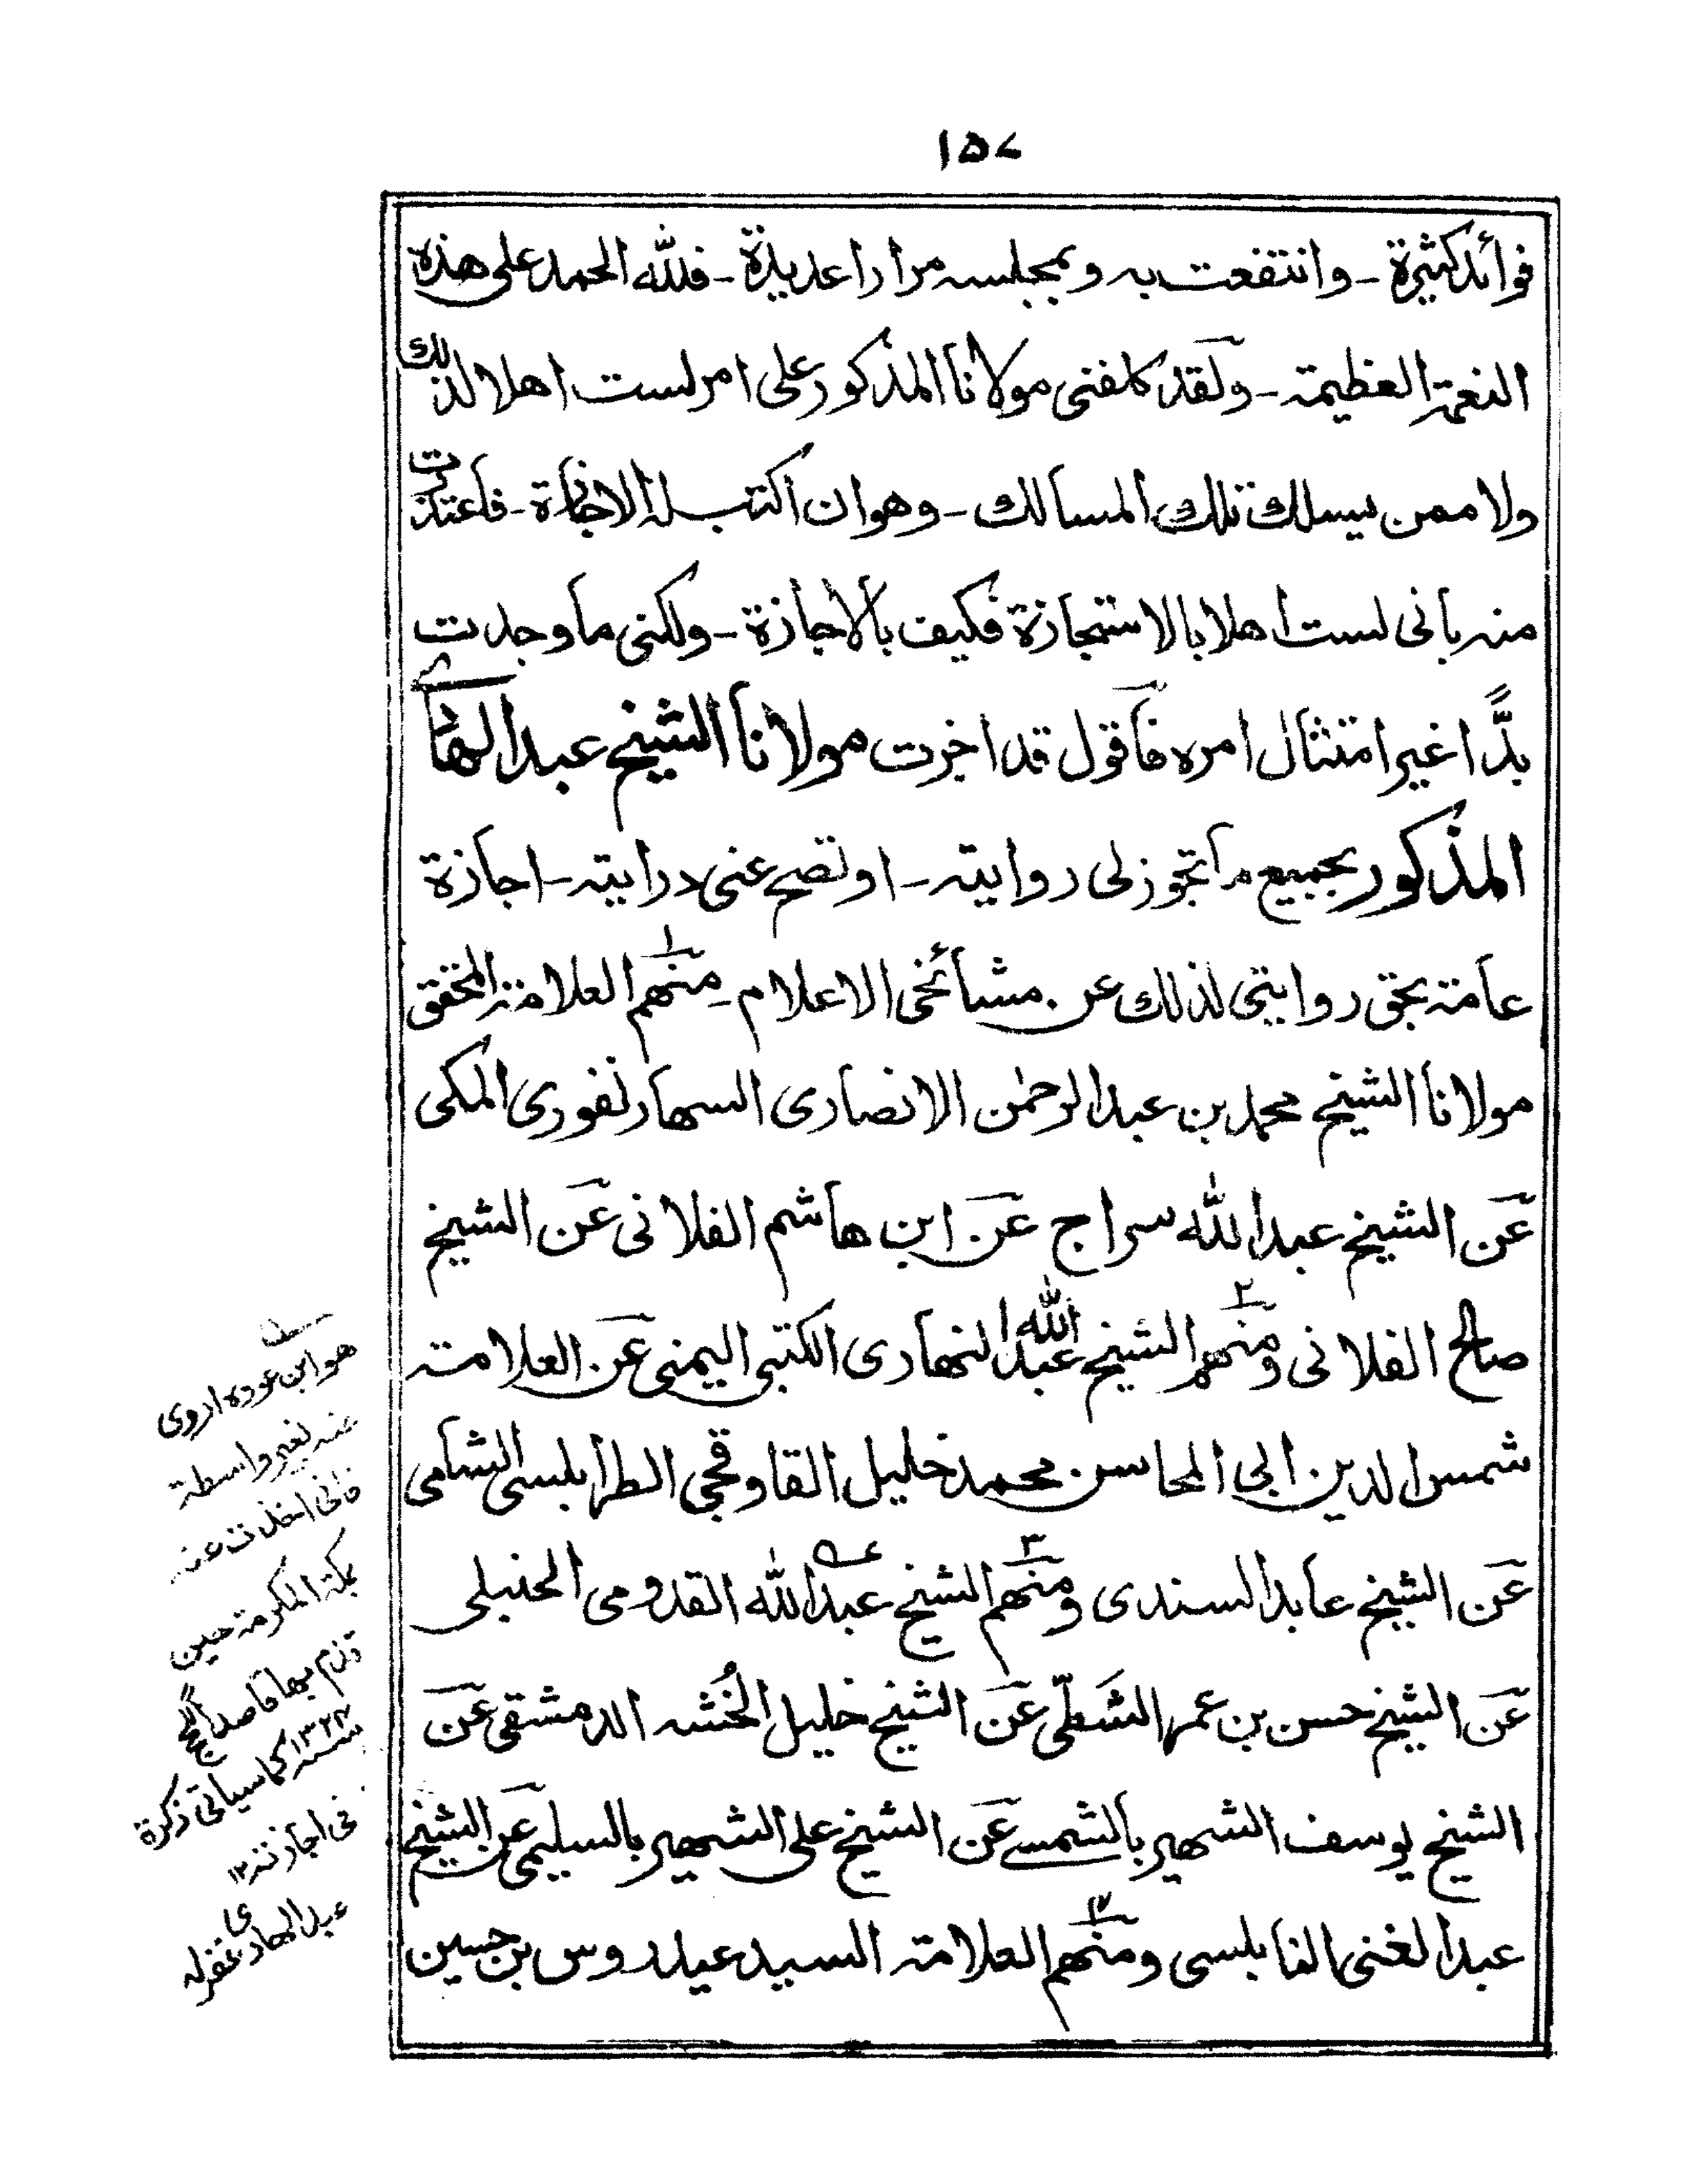 ١٥٧
فوائد كثيرة - وانتفعت به وبمجلسه مرارا عديدة - فلله الحمد على هذه
النعمة العظيمة - ولقد كلفنى مولانا المذكور على امر لست اهلا لذلك
ولا ممن يسلك تلك المسالك - وهو ان اكتب له الاجازة - فاعتذرت
منه بانى لست اهلا بالاستجازة فكيف بالاجازة - ولكنى ما وجدت
بدًّا غير امتثال امره فاقول قد اجزت مولانا الشيخ عبدالهادى
المذكور بجميع ما تجوز لى روايته - او تصح عنى درايته - اجازة
عامة بحق روايتى لذلك عن مشائخى الاعلام - منهم ١ العلامة المحقق
مولانا الشيخ محمد بن عبدالرحمٰن الانصارى السهارنفورى المكى
عَن الشيخ عبدالله سراج عَن ابن هاشم الفلانى عَن الشيخ
صالح الفلانى ومنهم ٢ الشيخ عبدالله النهارى الكتبى اليمنى عَن العلامة
شمس الدين ابى المحاسن محمد خليل القاوقجى الطرابلسى الشامى
عَن الشيخ عابد السندى ومنهم ٣ الشيخ عبدالله القدومى الحنبلى
عَن الشيخ حسن بن عمر الشَطّى عَن الشيخ خليل الخُشه الدمشقى عَن
الشيخ يوسف الشهير بالشمسے عَن الشيخ على الشهير بالسليمى عَن الشيخ
عبدالغنى النابلسى ومنهم ٤ العلامة السيد عيدروس بن حسين
هو ابن عوده اروى
عنه بغير واسطة
فانى اخذت عنه
بمكة المكرمة حين
قدم بها قاصد الحج
سنة ١٣٢٤ كما سياتى ذكره
فى اجازته ١٢
عبدالهادى غفرله